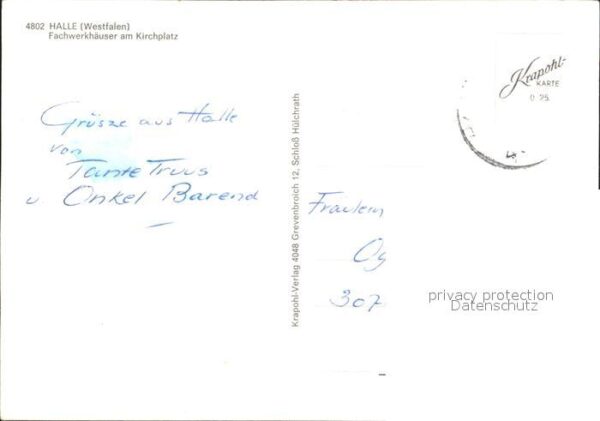 4802 HALLE (Westfalen)
Fachwerkhäuser am Kirchplatz
Krapohl-
KARTE
Grüsze aus Halle
von
Tante Truus
u. Onkel Barend
Krapohl-Verlag 4048 Grevenbroich 12, Schloß Hülchrath
Fraulein
307
privacy protection
Datenschutz